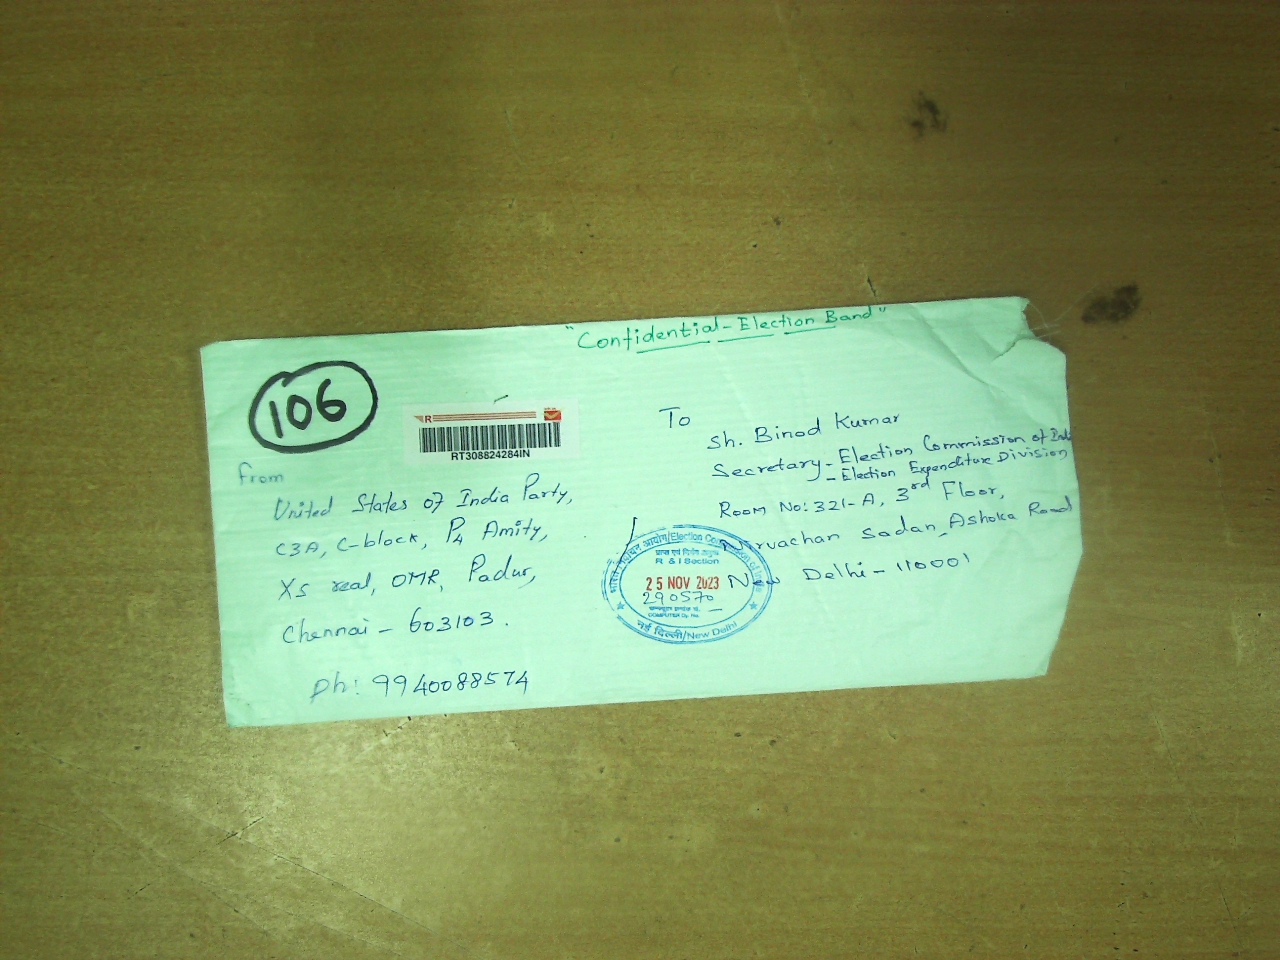 "Confidential - Election Band"
106
R
RT308824284IN
From
United States of India Party,
C3A, C-block, P4 Amity,
XS real, OMR, Padur,
Chennai - 603103.
Ph: 9940088574
To
Sh. Binod Kumar
Secretary - Election Commission of
- Election Expenditure Division
Room No: 321-A, 3rd Floor,
Nirvachan Sadan, Ashoka Road
New Delhi - 110001
भारत निर्वाचन आयोग/Election Commission of India
R & I Section
25 NOV 2023
290570
COMPUTER Dy. No.
नई दिल्ली/New Delhi